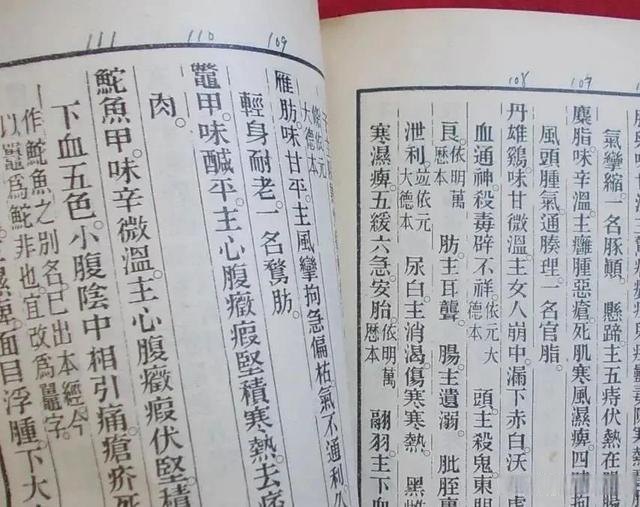 107
108
氣攣縮一名豚顛。懸蹄主五痔伏熱在腸
麋脂味辛溫主癰腫惡瘡死肌寒風濕痺四肢拘
風頭腫氣通腠理一名官脂。
丹雄鷄味甘微溫主女人崩中漏下赤白沃
血通神殺毒辟不祥。依元大德本 頭主殺鬼東
良。依明萬曆本 肪主耳聾。腸主遺溺。肶胵裏
泄利。竝依元大德本 尿白主消渴傷寒寒熱。黑雌
寒濕痺五緩六急安胎。依明萬曆本 翮羽主下血
109
110
111
條依元大德本
雁肪味甘平。主風攣拘急偏枯氣不通利久
輕身耐老。一名鶩肪。
鼈甲。味鹹平。主心腹癥瘕堅積寒熱去痞
肉。
鮀魚甲味辛微溫。主心腹癥瘕伏堅積
下血五色。小腹陰中相引痛。瘡疥死
作鮀魚之別名。已出本經。今
以鼉爲鮀非也。宜改爲鼉字。
濕痺。面目浮腫。下大